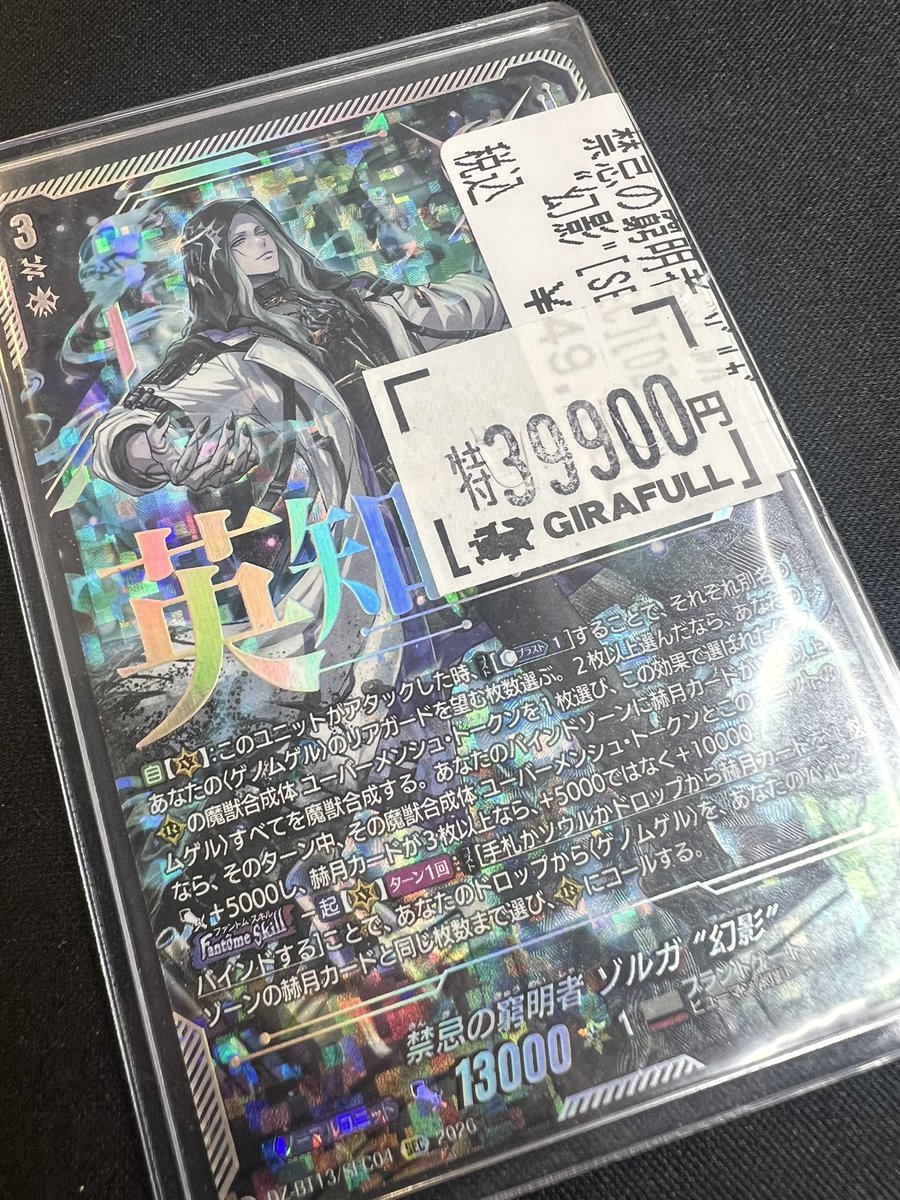 3
禁忌の窮明者
"幻影"[SE
税込
¥
49,
特付39900円
GIRAFULL
英知
自【】:このユニットがアタックした時、【ブラスト1】することで、それぞれ別名の
あなたの〈ゲノムゲル〉のリアガードを望む枚数選ぶ。2枚以上選んだなら、あなたの
の魔獣合成体 ユーバーメンシュ・トークンを1枚選び、この効果で選ばれた
ムゲル〉すべてを魔獣合成する。あなたのバインドゾーンに赫月カードが
なら、そのターン中、その魔獣合成体 ユーバーメンシュ・トークンとこの
+5000し、赫月カードが3枚以上なら、+5000ではなく+10000。
ファントム スキル
Fantôme Skill
起【】ターン1回:【手札かソウルかドロップから赫月カードを
バインドする】ことで、あなたのドロップから〈ゲノムゲル〉を、あなたのバイン
ゾーンの赫月カードと同じ枚数まで選び、にコールする。
きゅうめいしゃ
禁忌の窮明者 ゾルガ "幻影"
13000
1
ブラントゲート
ノーマルユニット
DZ-BT13/SEC04 SEC 2026